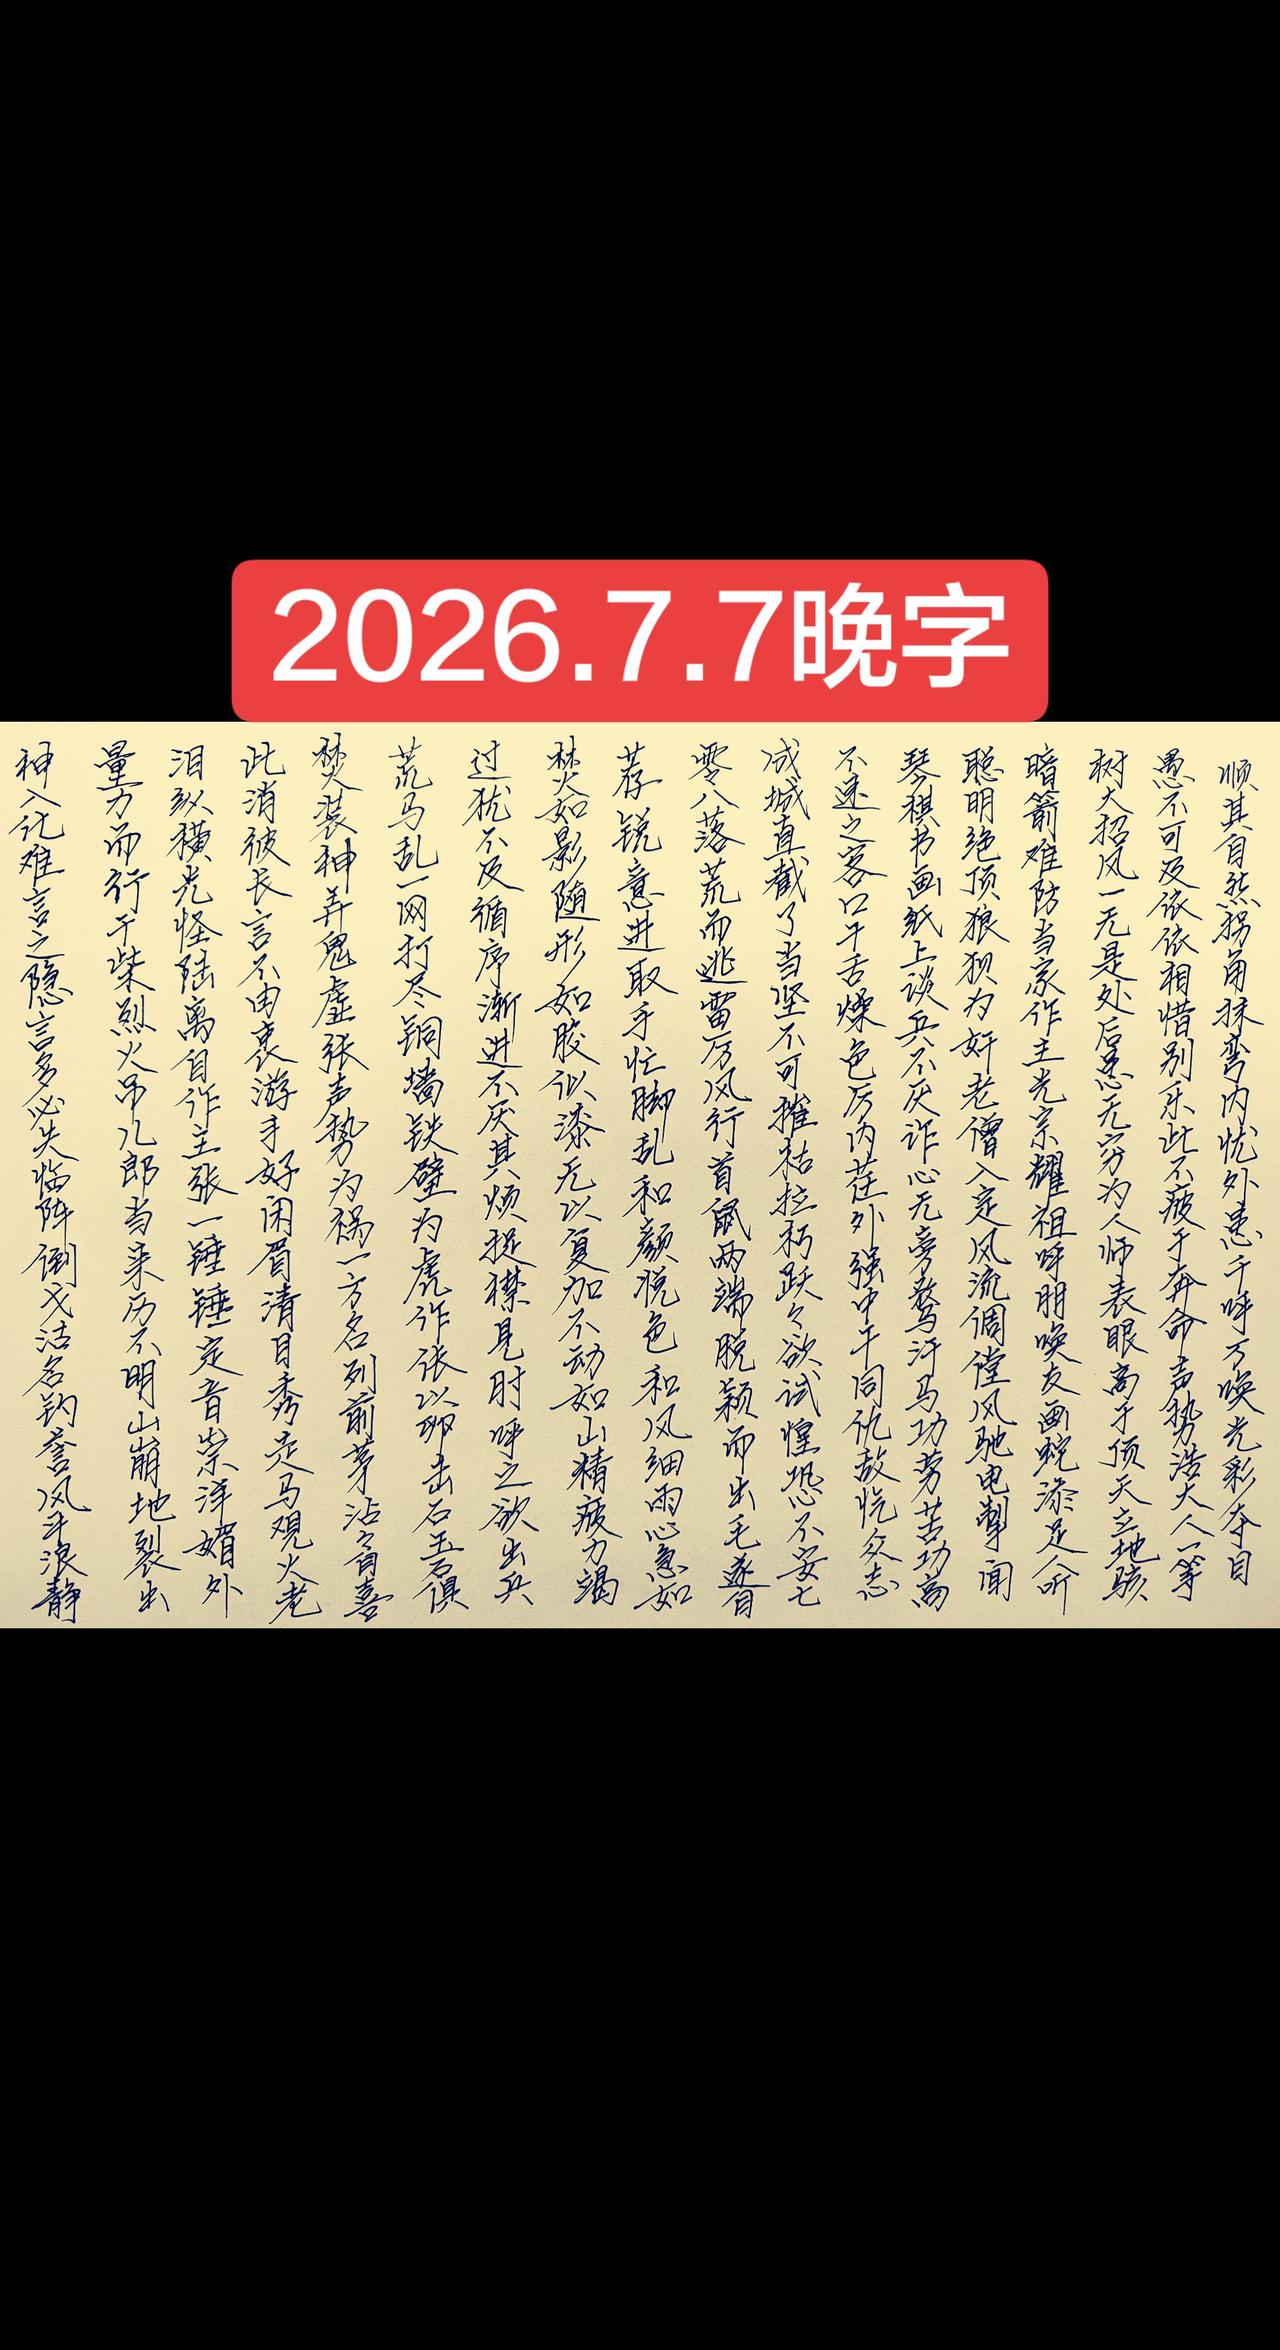 2026.7.7晚字
顺其自然拐角抹弯内忧外患千呼万唤光彩夺目
愚不可及依依相惜别乐此不疲于奔命声势浩大人一等
树大招风一无是处后患无穷为人师表眼高于顶天立地骇
暗箭难防当家作主光宗耀祖呼朋唤友画蛇添足人听
聪明绝顶狼狈为奸老僧入定风流倜傥风驰电掣闻
琴棋书画纸上谈兵不厌诈心无旁骛汗马功劳苦功高
不速之客口干舌燥色厉内荏外强中干同仇敌忾众志
成城直截了当坚不可摧枯拉朽跃々欲试惶恐不安七
零八落荒而逃雷厉风行首鼠两端脱颖而出毛遂自
荐锐意进取手忙脚乱和颜悦色和风细雨心急如
焚如影随形如胶似漆无以复加不动如山精疲力竭
过犹不及循序渐进不厌其烦捉襟见肘呼之欲出兵
荒马乱一网打尽铜墙铁壁为虎作伥以卵击石玉石俱
焚装神弄鬼虚张声势为祸一方名列前茅沾々自喜
此消彼长言不由衷游手好闲眉清目秀走马观火老
泪纵横光怪陆离自作主张一锤锤定音崇洋媚外
量力而行干柴烈火吊儿郎当来历不明山崩地裂出
神入化难言之隐言多必失临阵倒戈沽名钓誉风平浪静